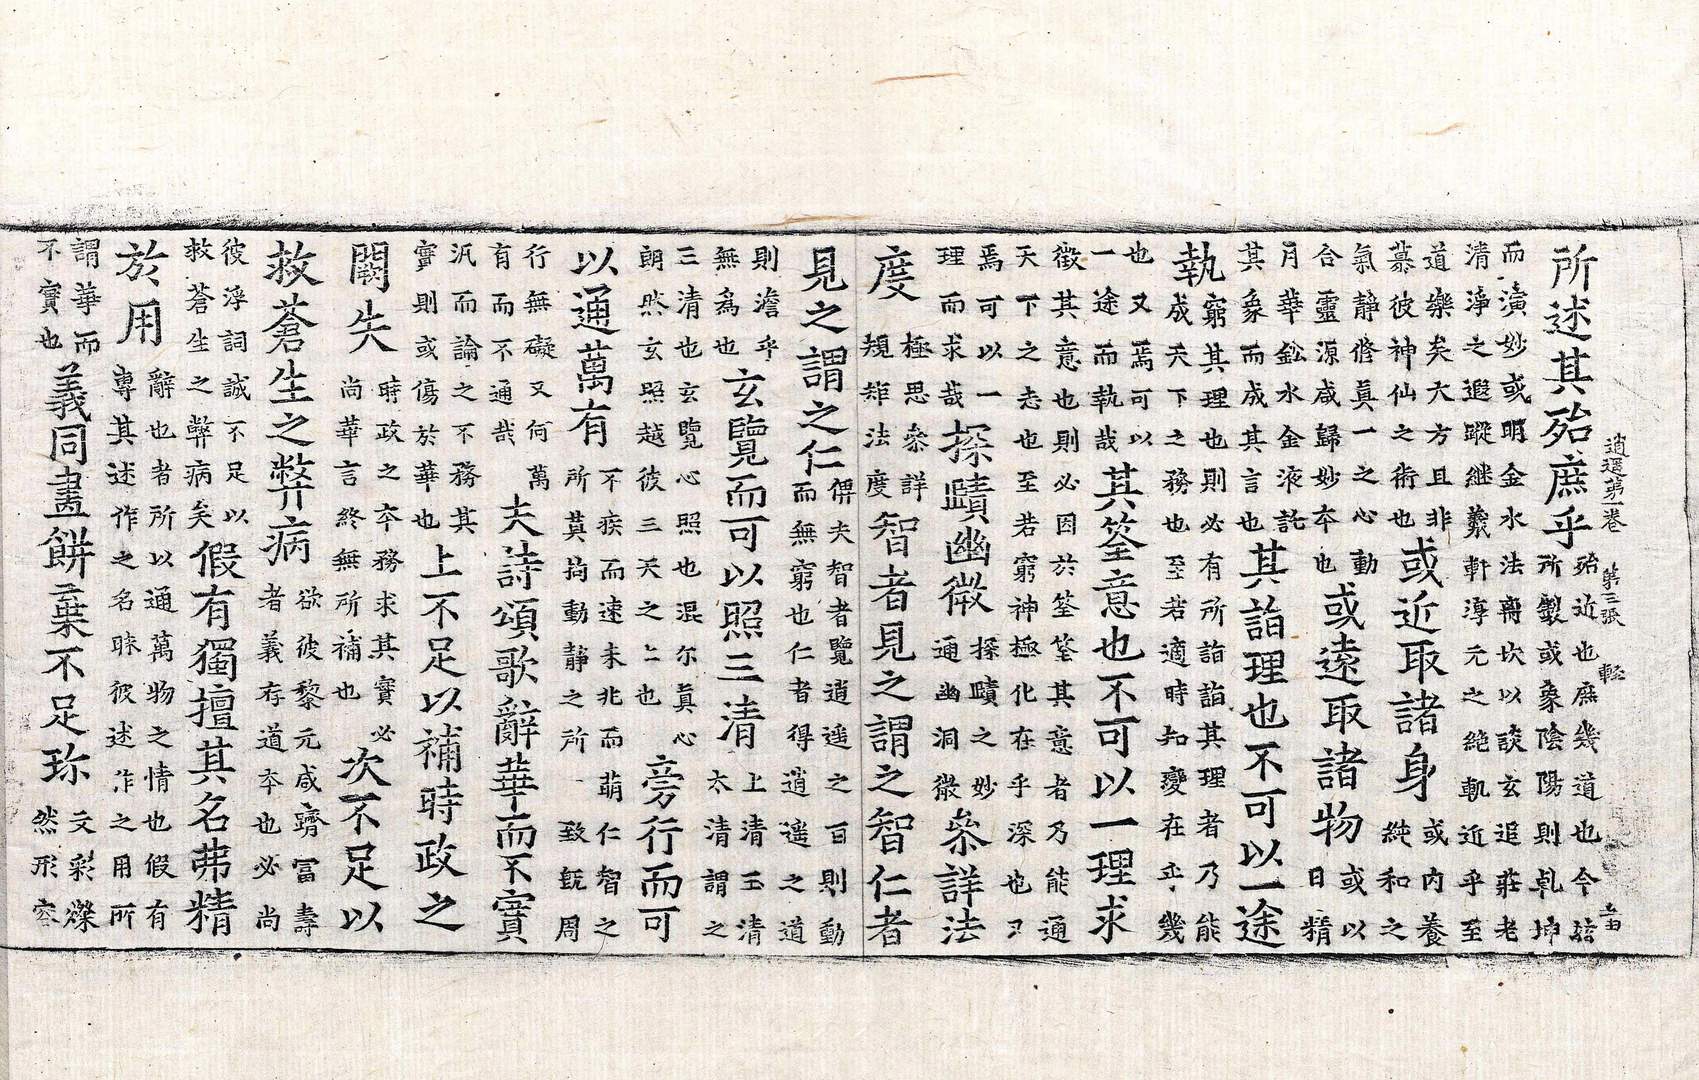 逍遥苐一卷 第三張 輕
所述其殆庶乎
殆近也庶幾道也今詳
所製或象陰陽則乹坤
而演妙或明金水法离坎以談玄追莊老
清淨之遐蹤継羲軒淳元之絶軌近乎至
道樂矣大方且非
慕彼神仙之術也
或近取諸身
或内養
純和之
氣静修真一之心動
合靈源咸歸妙夲也
或遠取諸物
或以
日精
月華鈆水金液託
其象而成其言也
其詣理也不可以一途
執
窮其理也則必有所詣詣其理者乃能
成天下之務也至若適時知變在乎幾
也又焉可以
一途而執哉
其筌意也不可以一理求
徵其意也則必因於筌筌其意者乃能通
天下之志也至若窮神極化在乎深也又
焉可以一
理而求哉
探賾幽微
探賾之妙
通幽洞微
叅詳法
度
極思叅詳
規矩法度
智者見之謂之智仁者
見之謂之仁
俾夫智者覽逍遥之百則動
而無窮也仁者得逍遥之道
則澹乎
無為也
玄覽而可以照三清
上清玉清
太清謂之
三清也玄覽心照也混尔真心
朗然玄照越彼三天之上也
旁行而可
以通萬有
不疾而速未兆而萌仁智之
所莫拘動静之所致旣周
行無礙又何萬
有而不通哉
夫詩頌歌辭華而不實
汎而論之不務其
實則或傷於華也
上不足以補時政之
闕失
時政之夲務求其實必
尚華言終無所補也
次不足以
救蒼生之弊病
欲彼黎元咸躋富壽
者義存道夲也必尚
彼浮詞誠不足以
救蒼生之弊病矣
假有獨擅其名弗精
於用
辭也者所以通萬物之情也假有
專其述作之名昧彼述作之用所
謂華而
不實也
義同畫餅棄不足珍
文彩燦
然形容